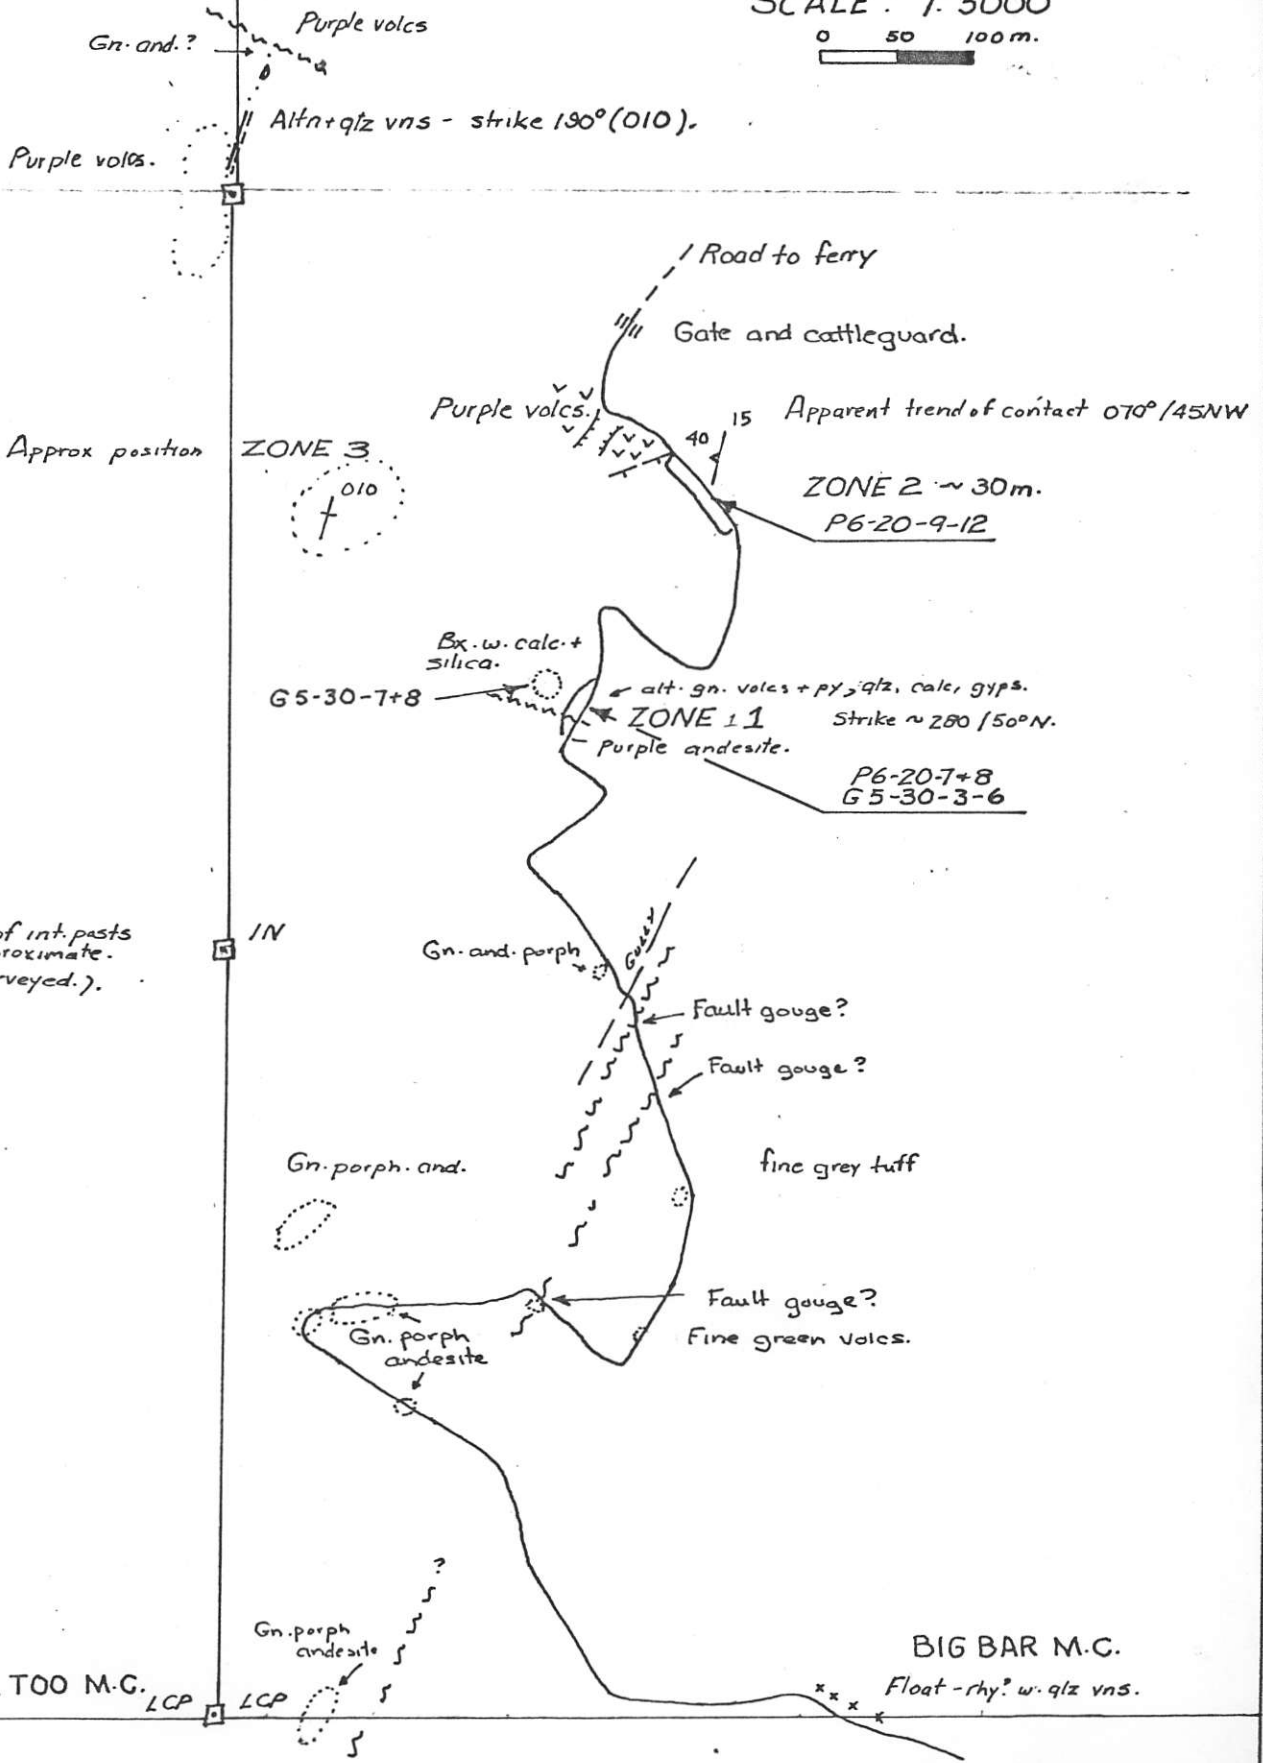 SCALE : 1: 5000
0 50 100m.
Purple volcs
Gn. and. ?
Altn + qtz vns - strike 190° (010).
Purple volcs.
Road to ferry
Gate and cattleguard.
Purple volcs.
40
15
Apparent trend of contact 070°/45NW
Approx position
ZONE 3
010
ZONE 2 ~ 30m.
P6-20-9-12
Bx. w. calc. +
silica.
G5-30-7+8
alt. gn. volcs + py, qtz, calc, gyps.
ZONE 1
Strike ~ 280/50°N.
Purple andesite.
P6-20-7+8
G5-30-3-6
of int. posts
roximate.
rveyed.).
1N
Gn. and. porph
Gully
Fault gouge?
Fault gouge?
Gn. porph. and.
fine grey tuff
Fault gouge?
Fine green volcs.
Gn. porph
andesite
?
Gn. porph
andesite
TOO M.C.
LCP
LCP
BIG BAR M.C.
Float - rhy? w. qtz vns.